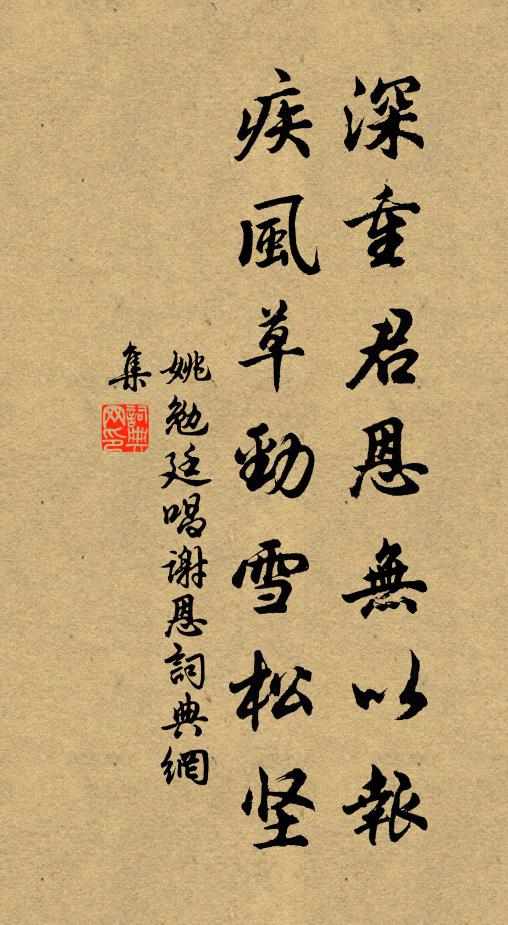 深重君恩無以報
疾風草勁雪松坚
姚勉廷唱谢恩詞典網
集
詞典网印